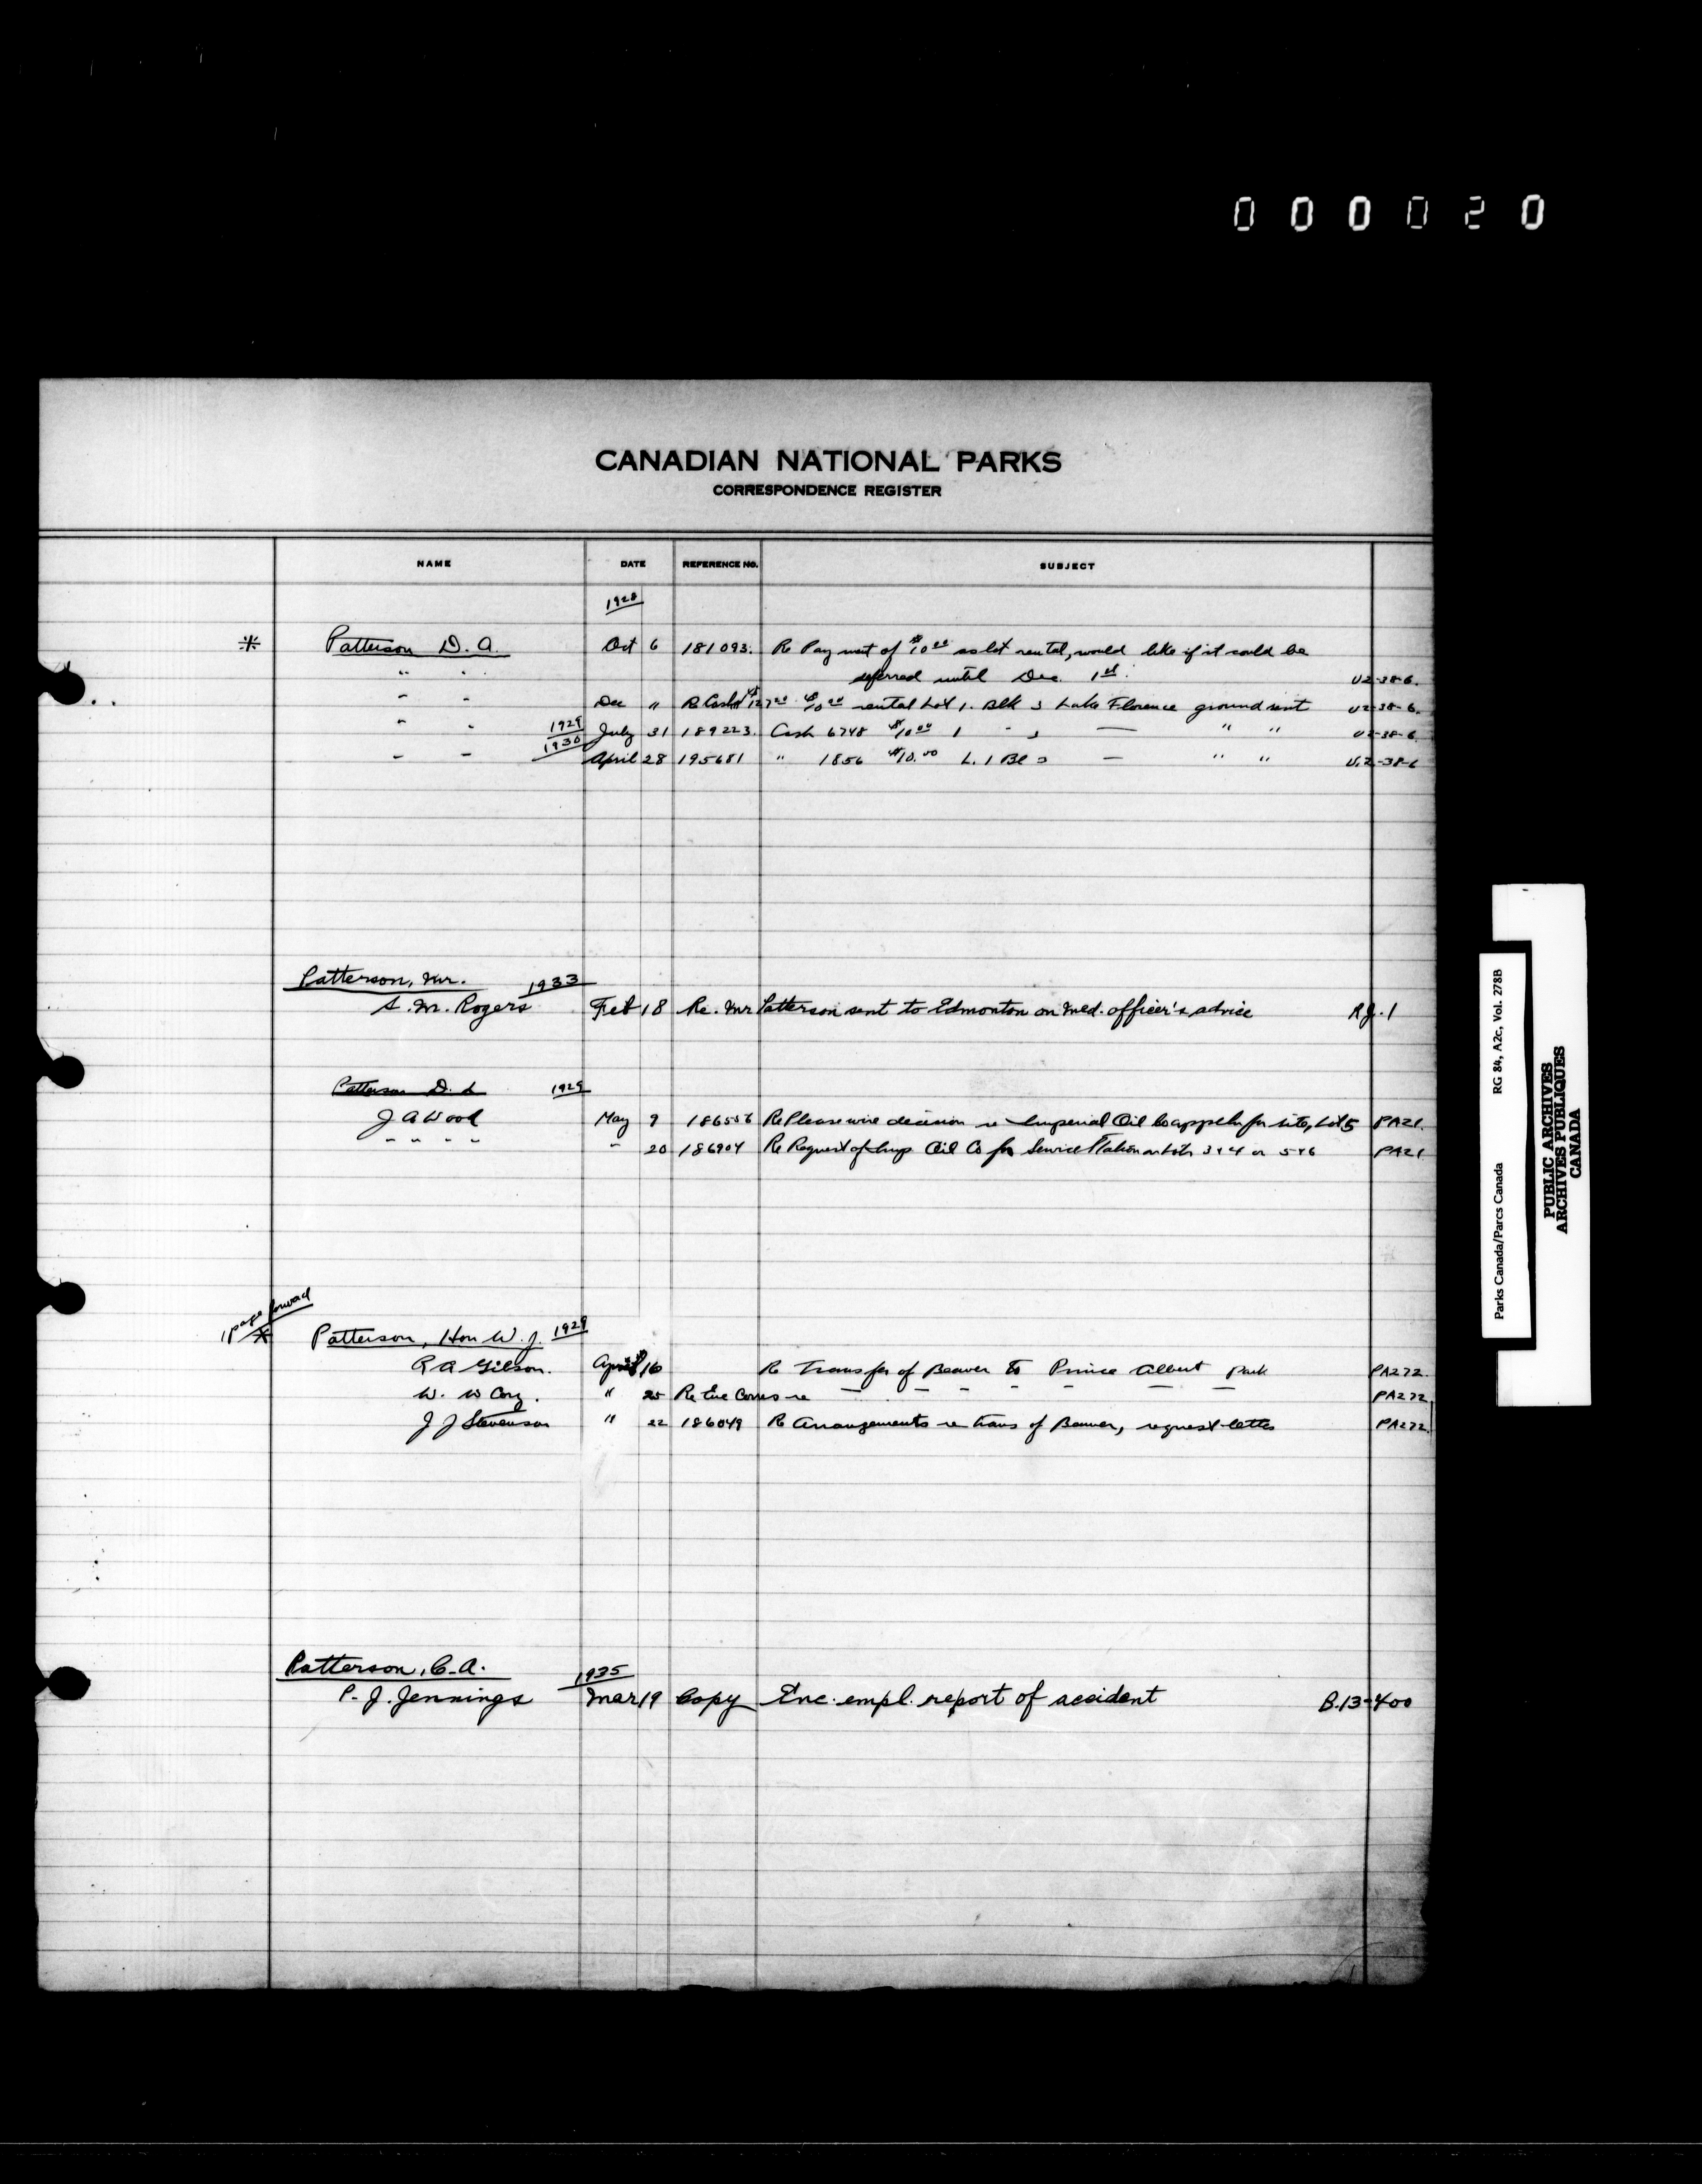 000020
CANADIAN NATIONAL PARKS
CORRESPONDENCE REGISTER
NAME DATE REFERENCE NO. SUBJECT
1928
* Patterson D. A. Oct 6 181093. Re Payment of $10.00 as lot rental, would like if it could be
" " deferred until Dec. 1st. U2-38-6.
" - Dec " $10.00 rental Lot 1. Blk 3 Lake Florence ground rent U2-38-6.
" - 1929 July 31 189223. Cash 6748 $10.00 1 - 3 — " " U2-38-6
- - 1930 April 28 195681 " 1856 $10.00 L. 1 Bl 3 — " " U.2-38-6
Patterson, Mr. 1933
S. M. Rogers Feb 18 Re. Mr Patterson sent to Edmonton on Med. officer's advice RJ.1
Patterson D. L 1929
J A Wood May 9 186556 Re Please wire decision re Imperial Oil Co appln for site, Lot 5 PA21.
" " " " " 20 186904 Re Request of Imp Oil Co for Service Station on Lots 3 & 4 or 5 & 6 PA21
1 page forward
* Patterson, Hon W. J. 1929
R A Gibson. April 16 Re Transfer of Beaver to Prince Albert Park PA272.
W. W Cory. " 25 Re Enc Corres re — — - - — — PA272
J J Stevenson " 22 186049 Re Arrangements re trans of Beaver, request letter PA272.
Patterson, C. A. 1935
P. J. Jennings Mar 19 Copy Enc. empl. report of accident B.13-400
Parks Canada/Parcs Canada RG 84, A2c, Vol. 278B
PUBLIC ARCHIVES
ARCHIVES PUBLIQUES
CANADA